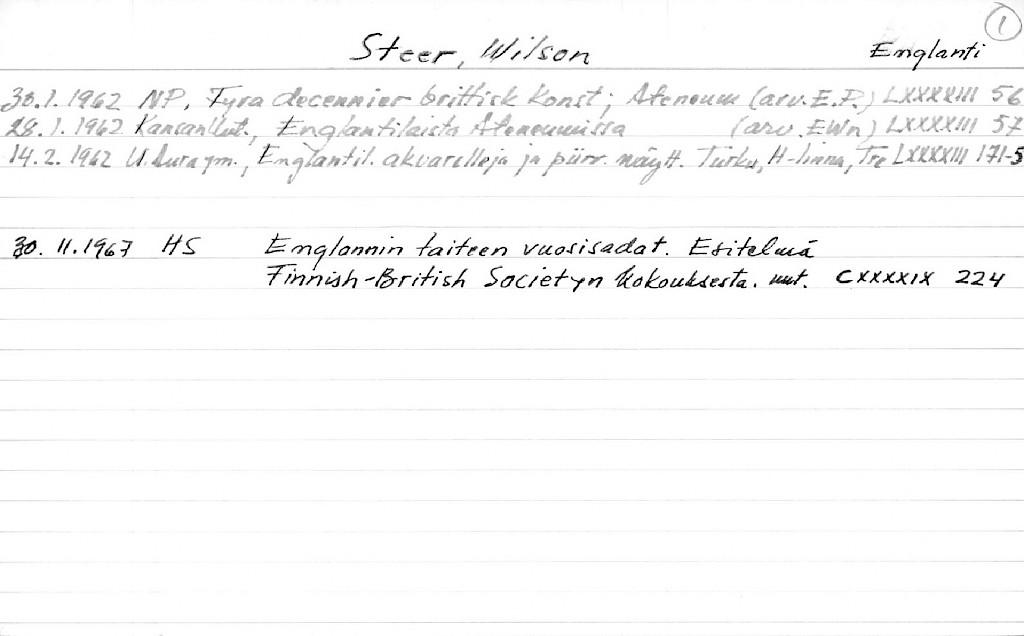 1
Steer, Wilson Englanti
30.1.1962 NP, Fyra decennier brittisk konst; Ateneum (arv. E.P.) LXXXXIII 56
28.1.1962 Kansan Uut., Englantilaista Ateneumissa (arv. EWn) LXXXXIII 57
14.2.1962 U. Aura ym., Englantil. akvarelleja ja piirr. näytt. Turku, H-linna, Tre LXXXXIII 171-5
30.11.1967 HS Englannin taiteen vuosisadat. Esitelmä
Finnish-British Societyn kokouksesta. uut. CXXXXIX 224